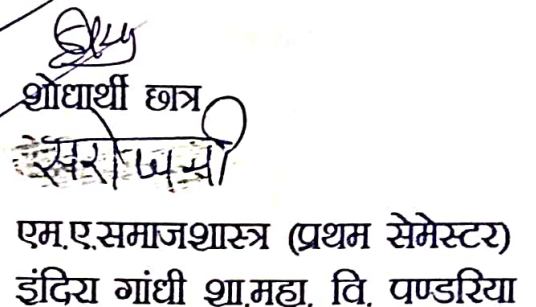 शोधार्थी छात्र
एम.ए.समाजशास्त्र (प्रथम सेमेस्टर)
इंदिरा गांधी शा.महा. वि. पण्डरिया